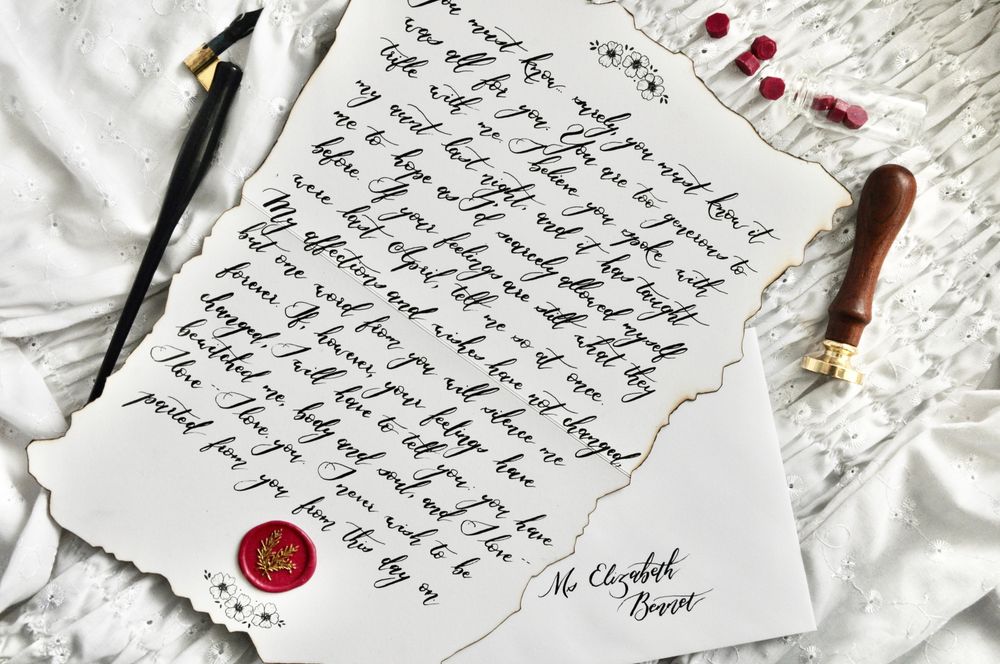 you must know.. surely, you must know it
was all for you. You are too generous to
trifle with me. I believe you spoke with
my aunt last night, and it has taught
me to hope as I'd scarcely allowed myself
before. If your feelings are still what they
were last April, tell me so at once.
My affections and wishes have not changed,
but one word from you will silence me
forever. If, however, your feelings have
changed, I will have to tell you: you have
bewitched me, body and soul, and I love--
I love-- I love you. I never wish to be
parted from you from this day on
Ms Elizabeth
Bennet